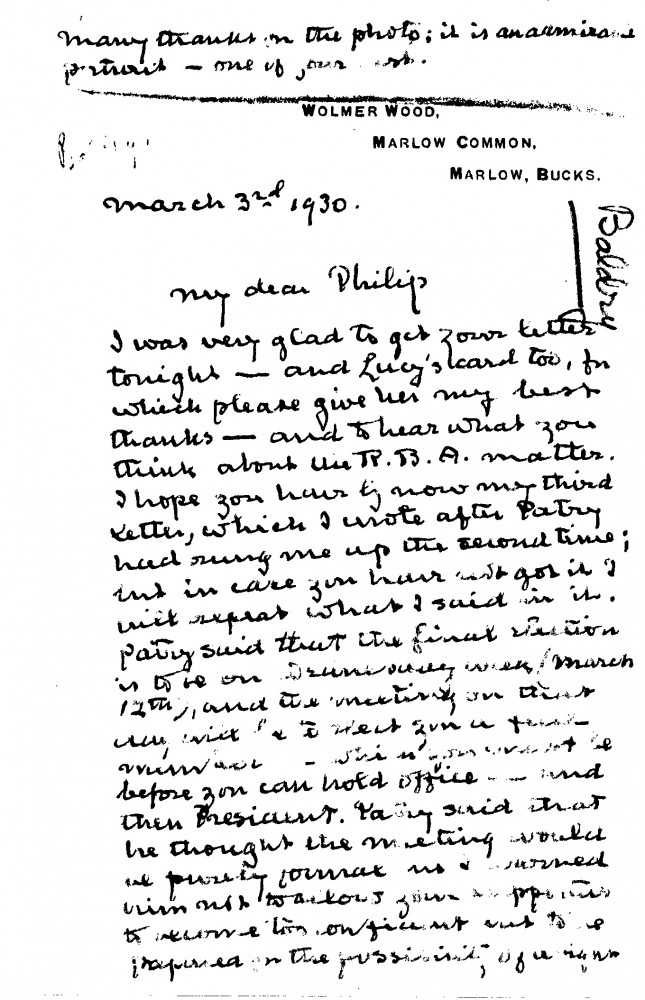 many thanks for the photo; it is an admirable
portrait – one of your best.
WOLMER WOOD,
MARLOW COMMON,
MARLOW, BUCKS.
Baldry
March 3rd 1930.
My dear Philip
I was very glad to get your letter
tonight — and Lucy's card too, for
which please give her my best
thanks — and to hear what you
think about the R.B.A. matter.
I hope you have by now my third
letter, which I wrote after Patry
had rung me up the second time;
but in case you have not got it I
will repeat what I said in it.
Patry said that the final election
is to be on week (March
12th), and the meeting on that
day will be to elect you a
be
before you can hold office — and
then President. Patry said that
he thought the meeting would
be purely formal but I warned
him not to allow your supporters
to become too confident but to be
prepared for the possibility of a fight